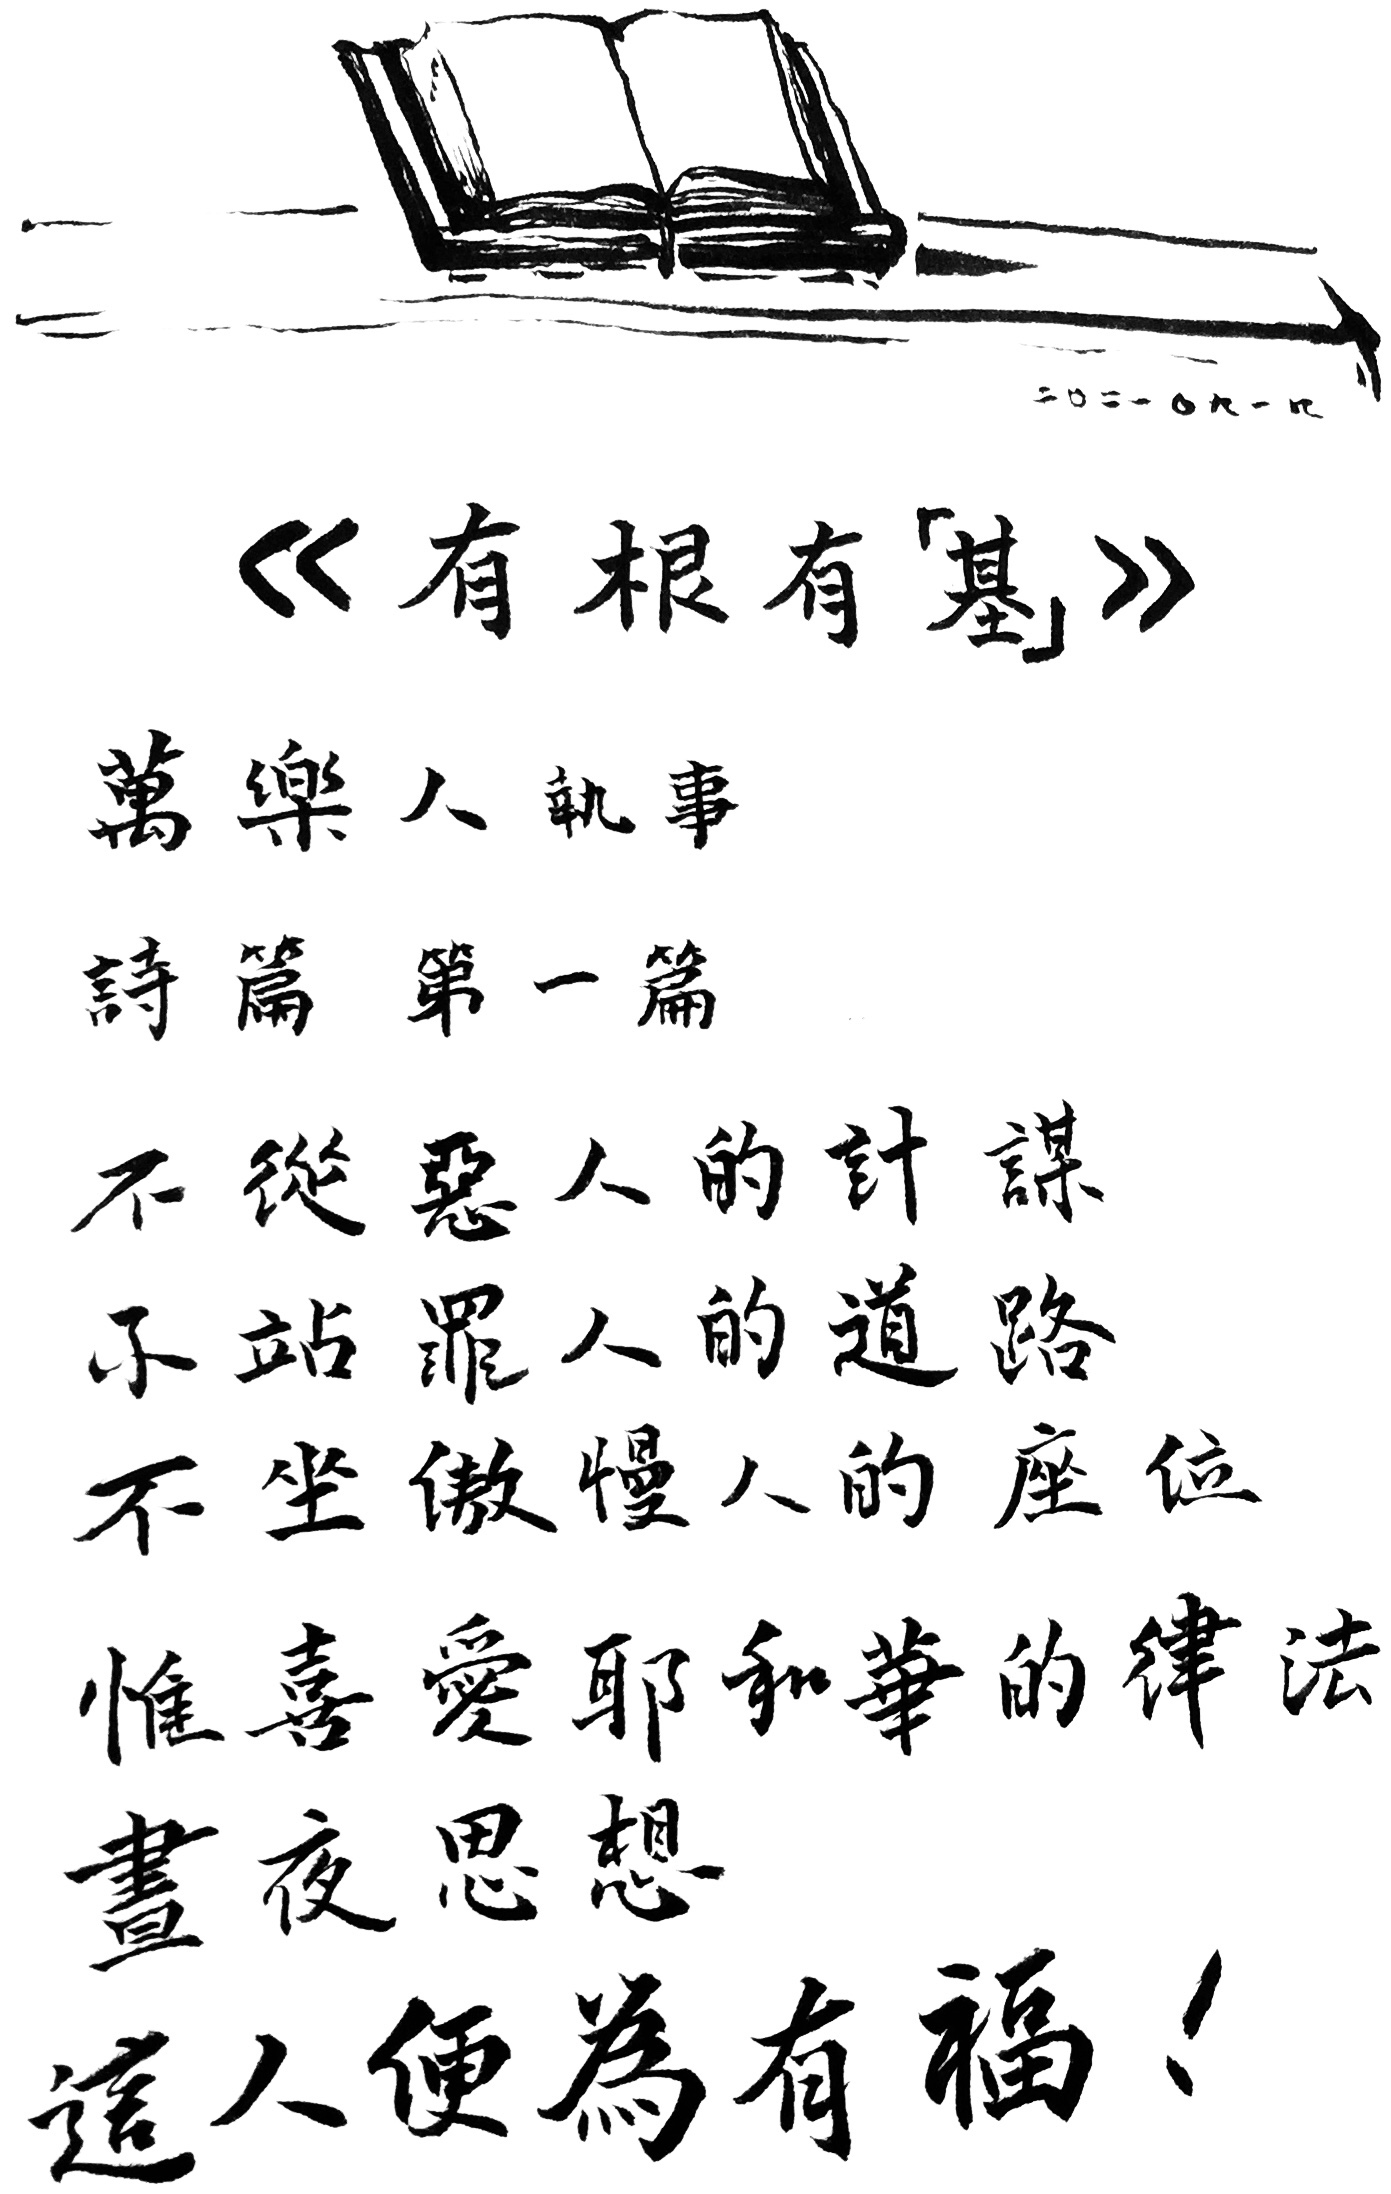 二〇二一〇九一九
《有根有「基」》
萬樂人執事
詩篇 第一篇
不從惡人的計謀
不站罪人的道路
不坐傲慢人的座位
惟喜愛耶和華的律法
晝夜思想
這人便為有福!